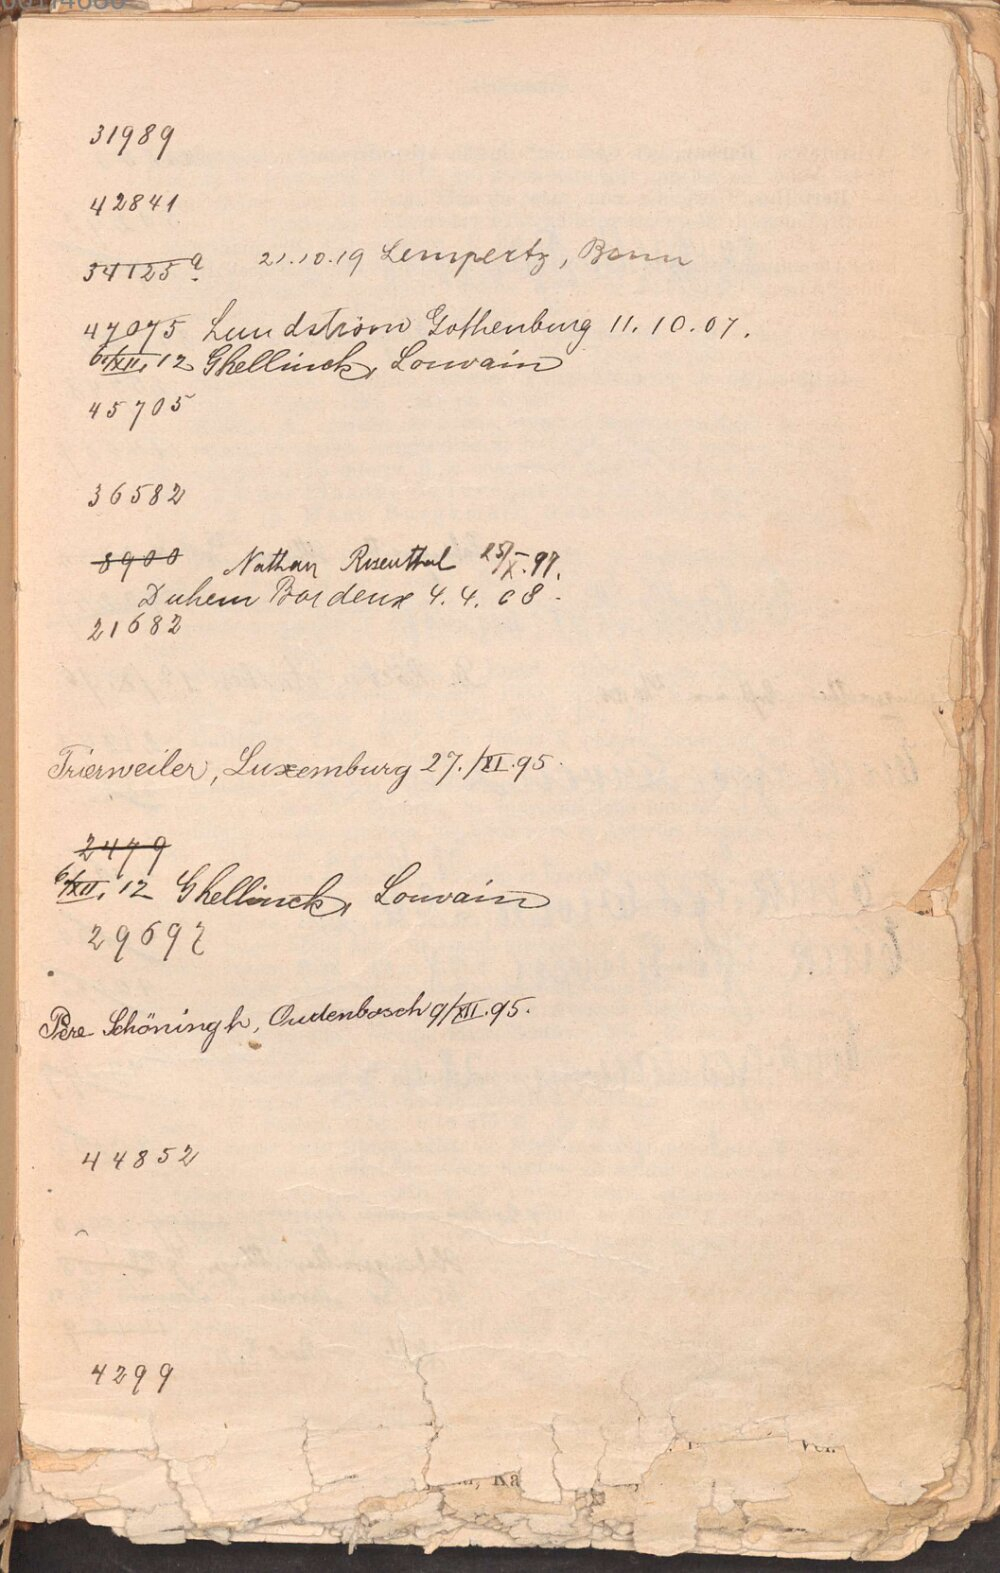 31989
42841
34125a 21.10.19 Lempertz, Bonn
47075 Lundström Gothenburg 11.10.07.
6/XII. 12 Ghellinck, Louvain
45705
36582
8900 Nathan Rosenthal 25/X. 97.
Duhem Bordeux 4.4.08.
21682
Trierweiler, Luxemburg 27./XI.95.
2479
6/XII. 12 Ghellinck, Louvain
29697
Père Schöningh, Oudenbosch 9/XII.95.
44852
4299
Ver.
Ka